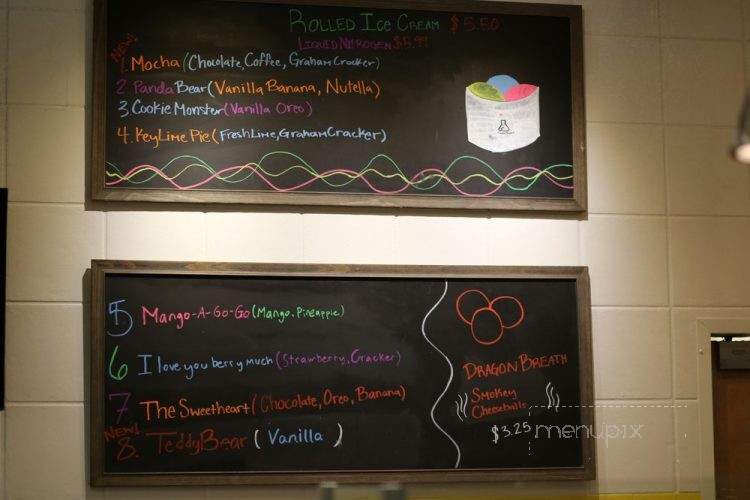 ROLLED ICE CREAM $5.50
LIQUID NITROGEN $5.99
NEW!
1. MOCHA (CHOCOLATE, COFFEE, GRAHAM CRACKER)
2 PANDA BEAR (VANILLA BANANA, NUTELLA)
3. COOKIE MONSTER (VANILLA OREO)
4. KEY LIME PIE (FRESH LIME, GRAHAM CRACKER)
5 MANGO-A-GO-GO (MANGO, PINEAPPLE)
6 I love you berry much (Strawberry, Cracker)
7 The Sweetheart (Chocolate, Oreo, Banana)
NEW!
8. Teddy Bear (Vanilla)
DRAGON BREATH
Smokey
Cheeseballs
$3.25
menupix